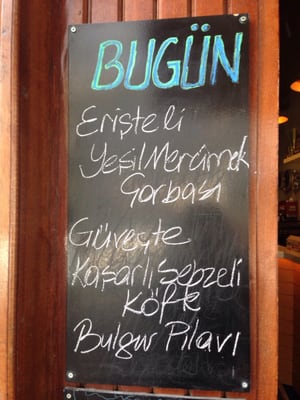 BUGÜN
Erişteli
Yeşil Mercimek
Çorbası
Güveçte
Kaşarlı, Sebzeli
Köfte
Bulgur Pilavı